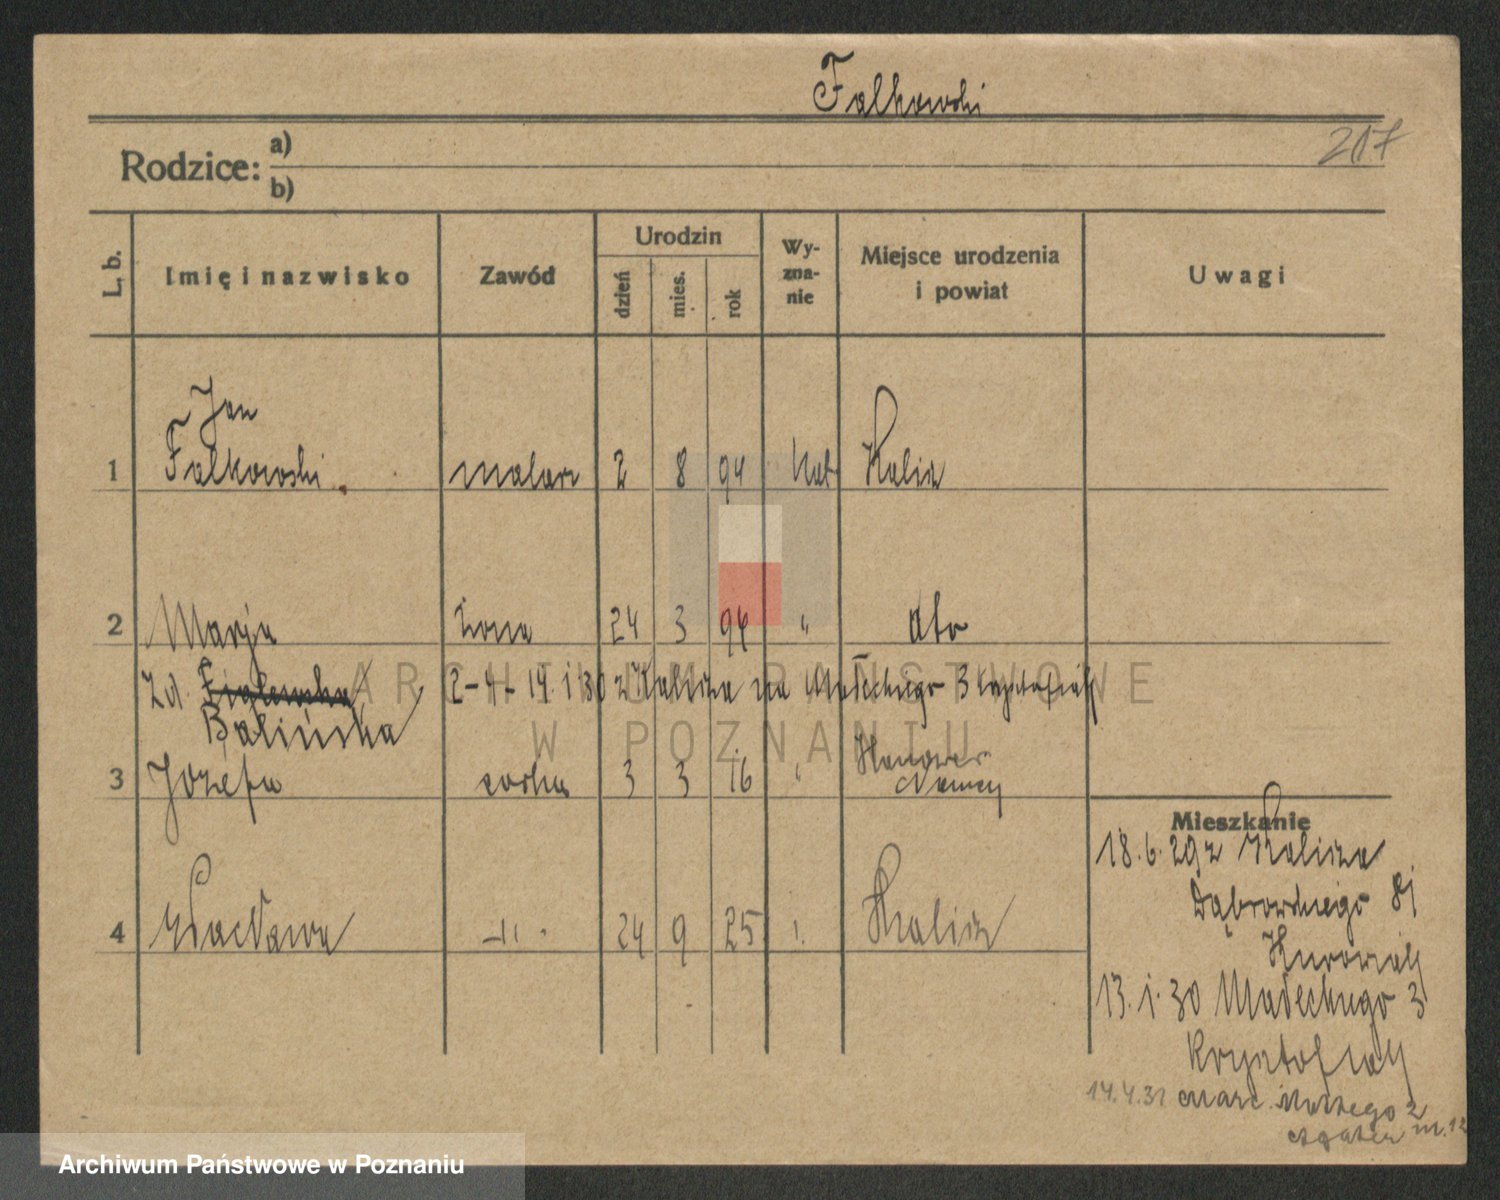 Falkowski
207
Rodzice:
a)
b)
L. b.
Imię i nazwisko
Zawód
Urodzin
dzień
mies.
rok
Wy-
zna-
nie
Miejsce urodzenia
i powiat
Uwagi
Jan
1 Falkowski malarz 2 8 94 kat Kalisz
2 Marja żona 24 3 94 " dto
Zd. 2-4-14.1.30 z Kalisza na Małeckiego 3
Balińska
Hanower
3 Józefa córka 3 3 16 " Niemcy
Mieszkanie
18.6.29 z Kalisza
Dąbrowskiego 81
4 Wacława -"- 24 9 25 " Kalisz
13.1.30 Małeckiego 3
Krysztofiak
14.4.31 Marc. 2
m. 12
ARCHIWUM PAŃSTWOWE
W POZNANIU
Archiwum Państwowe w Poznaniu